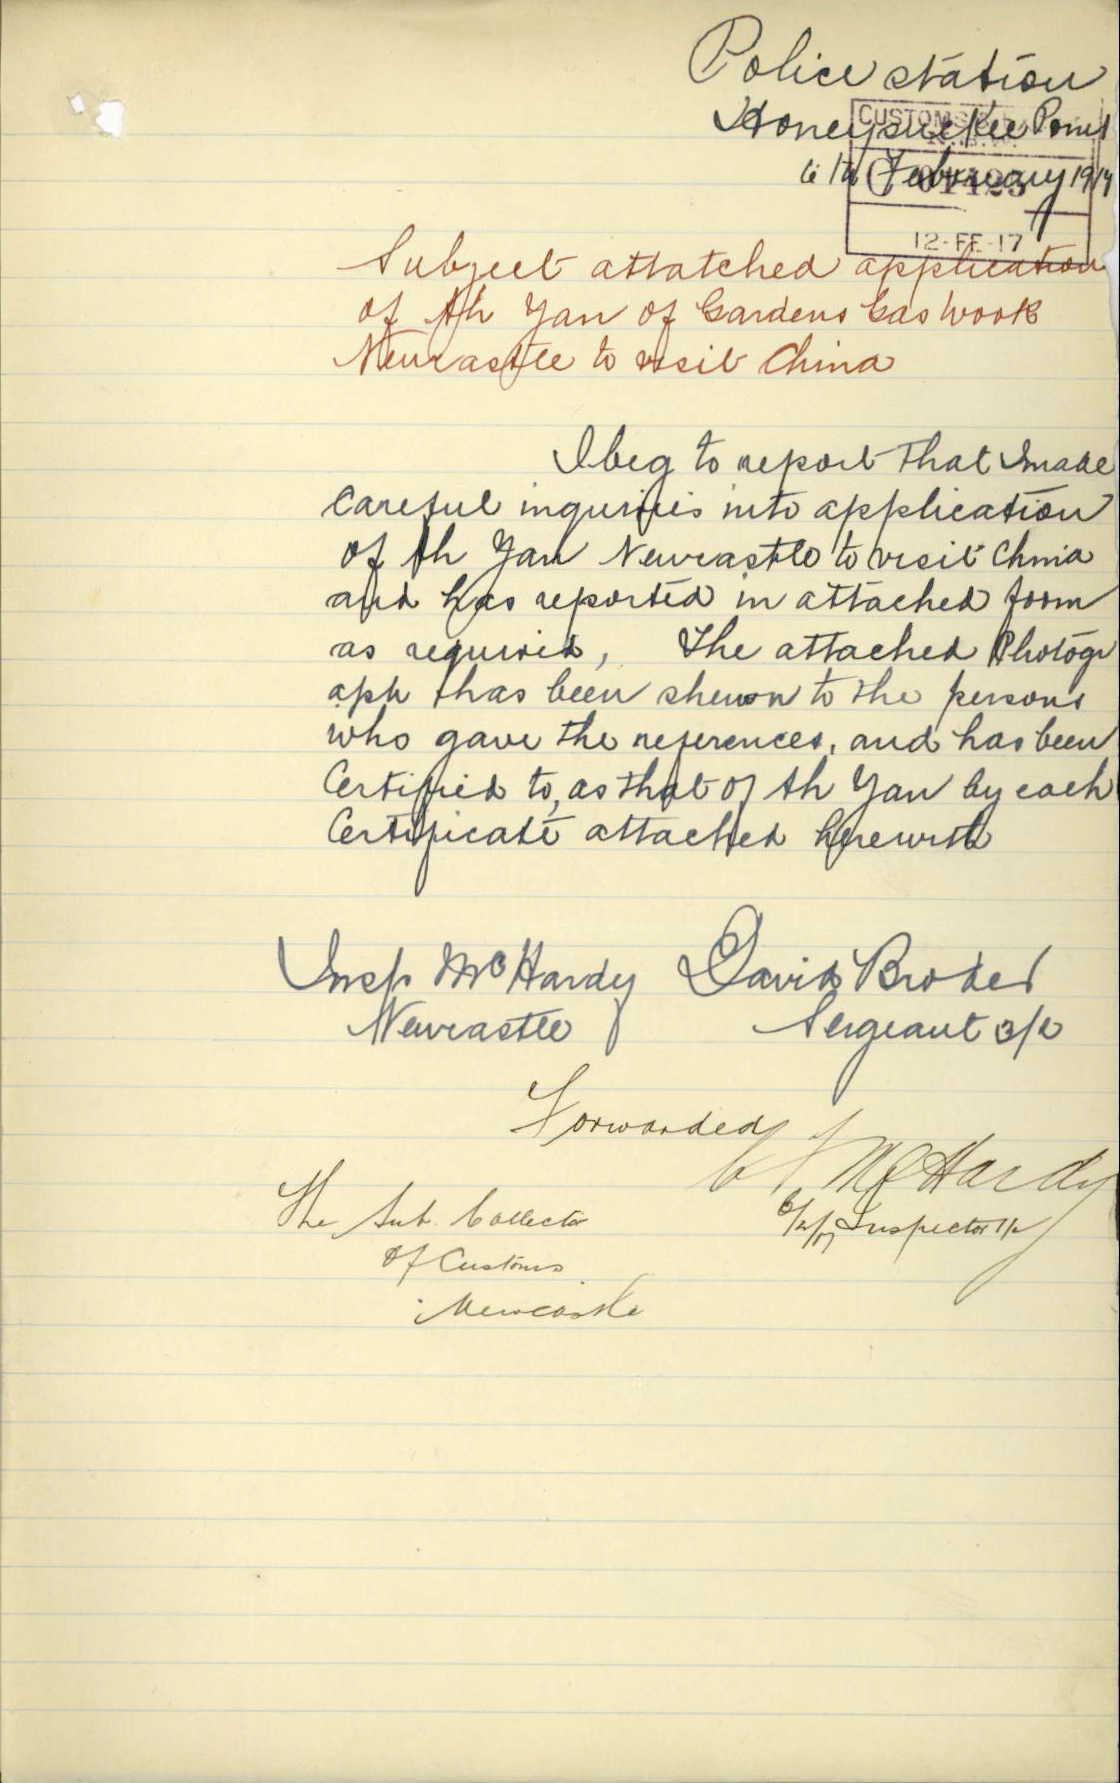 Police station
Honeysuckle Point
6th February 1917
CUSTOMS
12-FE-17
Subject attatched application
of Ah Yan of Gardens Gas Work
Newcastle to visit China
I beg to report that I made
Careful inquiries into application
of Ah Yan Newcastle to visit China
and has reported in attached form
as required, The attached Photogr
aph has been shewn to the persons
who gave the references, and has been
Certified to, as that of Ah Yan by each
Certificate attached herewith
Insp McHardy David Broder
Newcastle Sergeant 3/c
Forwarded
McHardy
The Sub. Collector 6/2/17 Inspector
of Customs
Newcastle